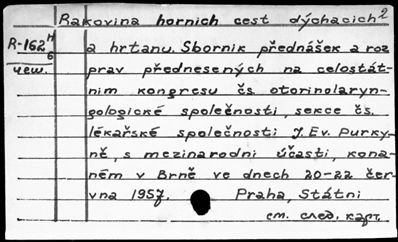 Rakovina horních cest dýchacích 2
R-162 H/6
чеш.
a hrtanu. Sborník přednášek a roz
prav přednesených na celostát-
ním kongresu čs. otorinolaryn-
gologické společnosti, sekce čs.
lékařské společnosti J. Ev. Purky-
ně, s mezinarodni účastí, kona-
ném v Brně ve dnech 20-22 čer-
vna 1957. Praha, Státní
см. след. карт.